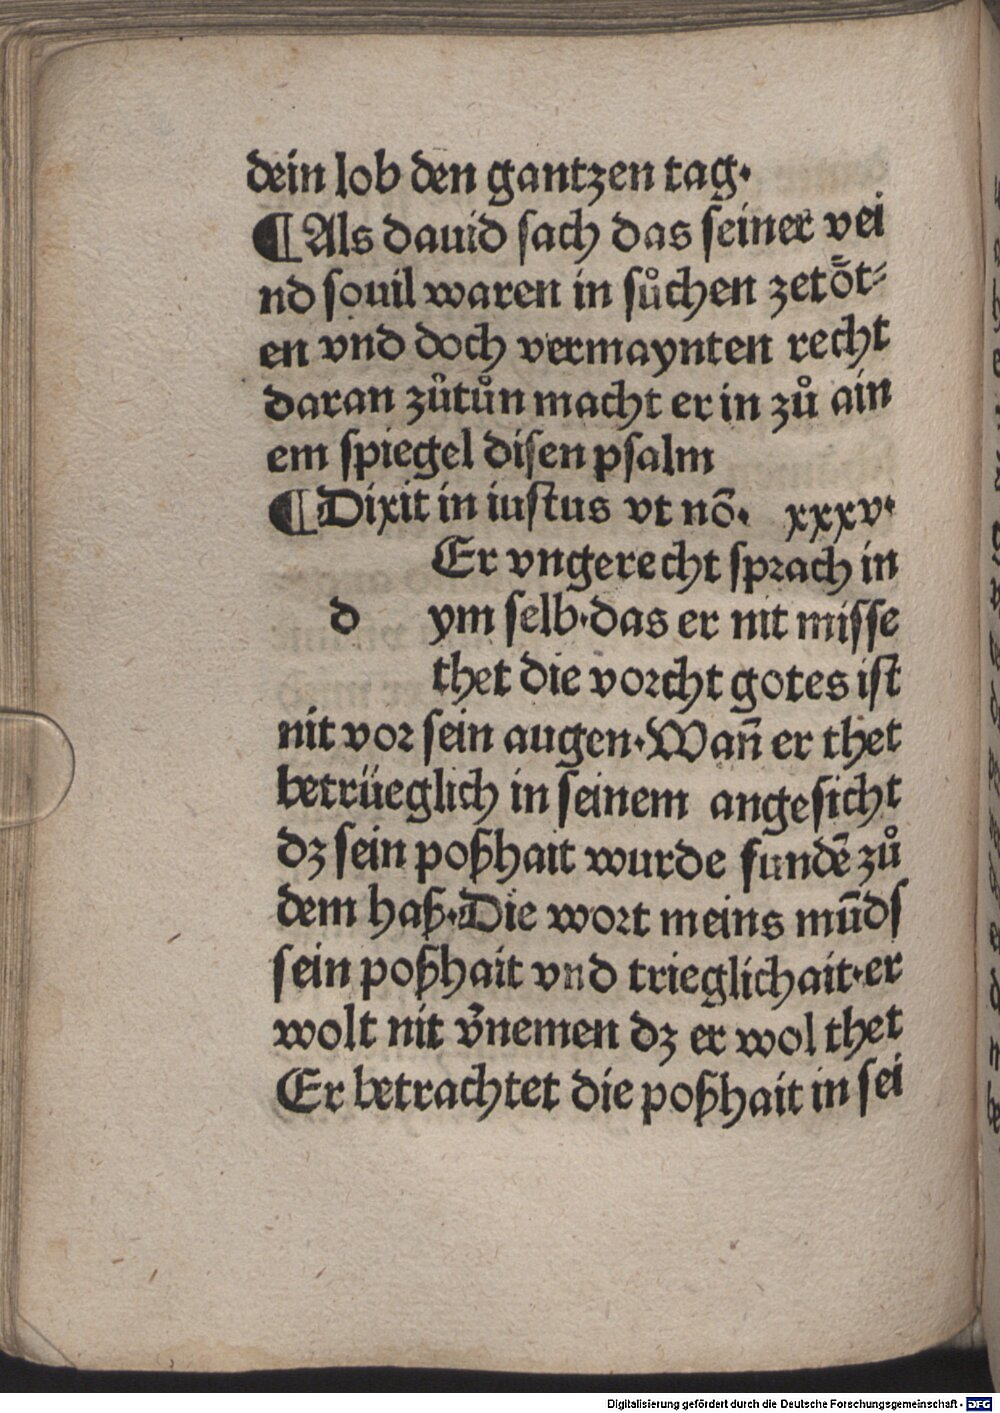 dein lob den gantzen tag·
¶Als dauid sach das seiner vei
nd souil waren in sůchen zetōͤt⸗
en vnd doch vermaynten recht
daran zůtůn macht er in zů ain
em spiegel disen psalm
¶Dixit in iustus vt nō· xxxv·
Er vngerecht sprach in
d ym selb·das er nit misse
thet die vorcht gotes ist
nit vor sein augen·Wañ er thet
betrüeglich in seinem angesicht
dz sein poßhait wurde fundē zů
dem haß·Die wort meins mūds
sein poßhait vnd trieglichait·er
wolt nit v̄nemen dz er wol thet
Er betrachtet die poßhait in sei
Digitalisierung gefördert durch die Deutsche Forschungsgemeinschaft - DFG